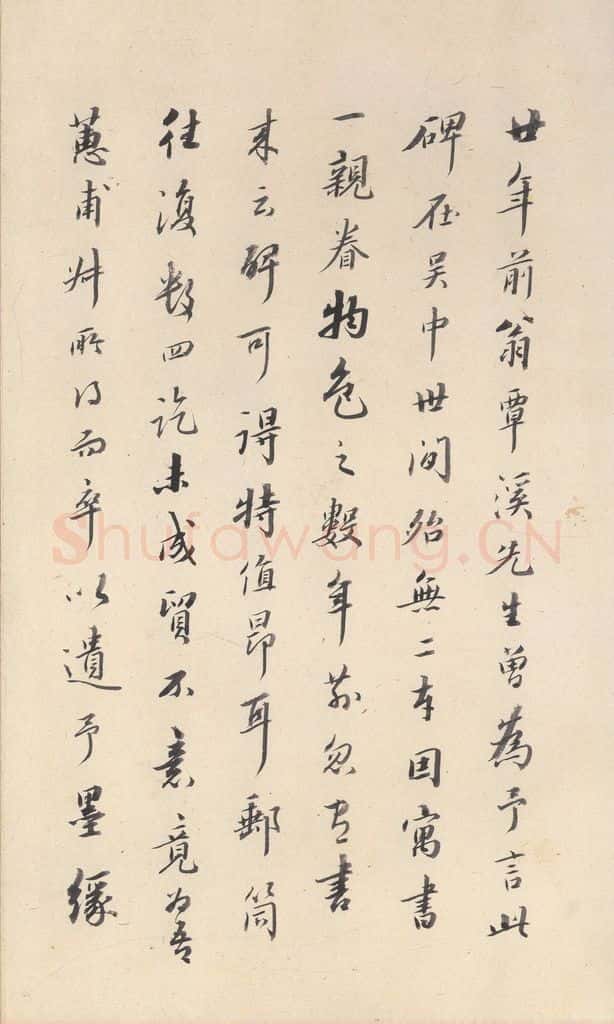 廿年前翁覃溪先生曾為予言此
碑在吳中世間殆無二本因寓書
一親眷物色之數年前忽有書
來云碑可得特值昂耳郵筒
往復數四訖未成貿不意竟為吾
蕙甫舛所得而卒以遺予墨緣
Shufawang.CN